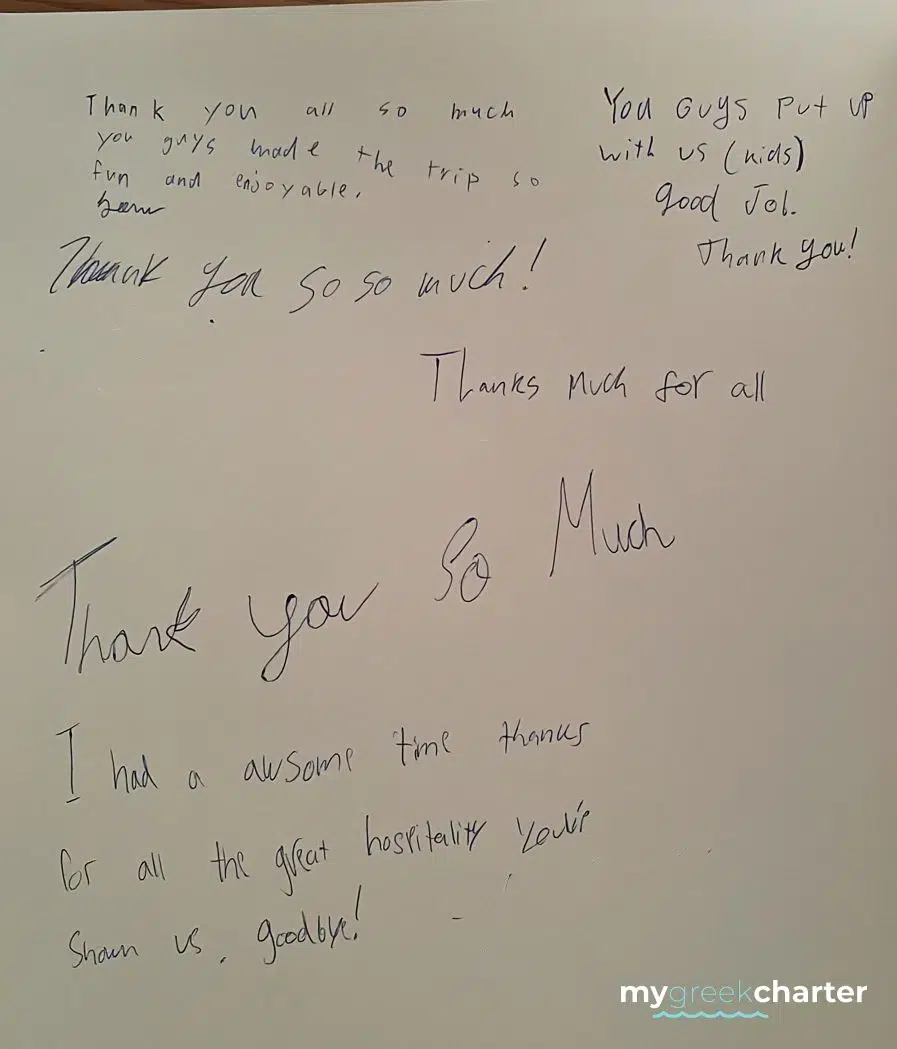 Thank you all so much
you guys made the trip so
fun and enjoyable.
You Guys Put up
with us (kids)
good Job.
Thank you!
Thank you so so much!
Thanks Much for all
Thank you So Much
I had a awsome time thanks
for all the great hospitality You've
Shown us, goodbye!
mygreekcharter